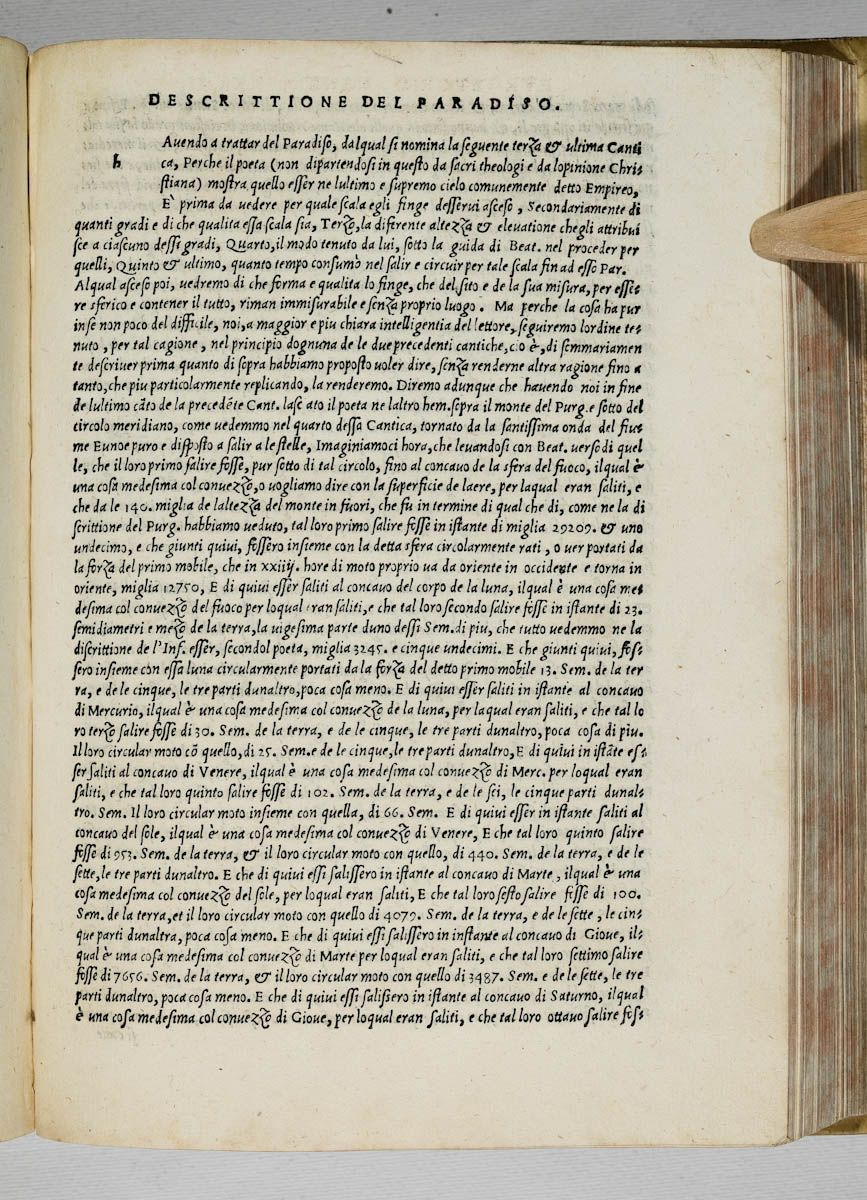 DESCRITTIONE DEL PARADISO.
h
Avendo a trattar del Paradiso, dalqual si nomina la seguente terza & ultima Canti
ca, Perche il poeta (non dipartendosi in questo da sacri theologi e da lopinione Chris-
stiana) mostra quello esser ne lultimo e supremo cielo comunemente detto Empireo,
E' prima da vedere per quale scala egli finge desserui asceso, Secondariamente di
quanti gradi e di che qualita essa scala sia, Terzo, la diferente altezza & elevatione chegli attribui
sce a ciascuno dessi gradi, Quarto, il modo tenuto da lui, sotto la guida di Beat. nel proceder per
quelli, Quinto & ultimo, quanto tempo consumò nel salir e circuir per tale scala fin ad esso Par.
Alqual asceso poi, uedremo di che forma e qualita lo finge, che del sito e de la sua misura, per esse-
re sferico e contener il tutto, riman immisurabile e senza proprio luogo. Ma perche la cosa ha pur
in se non poco del difficile, noi, a maggior e piu chiara intelligentia del lettore, seguiremo lordine te-
nuto, per tal cagione, nel principio dognuna de le due precedenti cantiche, cio è, di sommariamen
te descriuer prima quanto di sopra habbiamo proposto uoler dire, senza renderne altra ragione fino a
tanto, che piu particolarmente replicando, la renderemo. Diremo adunque che hauendo noi in fine
de lultimo cãto de la precedẽte Cant. lasc ato il poeta ne laltro hem. sopra il monte del Purg. e sotto del
circolo meridiano, come uedemmo nel quarto dessa Cantica, tornato da la santissima onda del fiu-
me Eunoe puro e disposto a salir a le stelle, Imaginiamoci hora, che leuandosi con Beat. uerso di quel
le, che il loro primo salire fosse, pur sotto di tal circolo, fino al concauo de la sfera del fuoco, ilqual è
una cosa medesima col conuezzo, o uogliamo dire con la superficie de laere, per laqual eran saliti, e
che da le 140. miglia de laltezza del monte in fuori, che fu in termine di qual che di, come ne la di
scrittione del Purg. habbiamo ueduto, tal loro primo salire fosse in istante di miglia 29209. & uno
undecimo, e che giunti quiui, fossero insieme con la detta sfera circolarmente rati, o uer portati da
la forza del primo mobile, che in xxiiij. hore di moto proprio ua da oriente in occidente e torna in
oriente, miglia 12750, E di quiui esser saliti al concauo del corpo de la luna, ilqual è una cosa me-
desima col conuezzo del fuoco per loqual eran saliti, e che tal loro secondo salire fosse in istante di 23.
semidiametri e mezo de la terra, la uigesima parte duno dessi Sem. di piu, che tutto uedemmo ne la
discrittione de l'Inf. esser, secondol poeta, miglia 3245. e cinque undecimi. E che giunti quiui, fos-
sero insieme con essa luna circularmente portati da la forza del detto primo mobile 13. Sem. de la ter
ra, e de le cinque, le tre parti dunaltro, poca cosa meno. E di quiui esser saliti in istante al concauo
di Mercurio, ilqual è una cosa medesima col conuezzo de la luna, per laqual eran saliti, e che tal lo
ro terzo salire fosse di 30. Sem. de la terra, e de le cinque, le tre parti dunaltro, poca cosa di piu.
Il loro circular moto cõ quello, di 25. Sem. e de le cinque, le tre parti dunaltro, E di quiui in istãte es-
ser saliti al concauo di Venere, ilqual è una cosa medesima col conuezzo di Merc. per loqual eran
saliti, e che tal loro quinto salire fosse di 102. Sem. de la terra, e de le sei, le cinque parti dunal-
tro. Sem. Il loro circular moto insieme con quella, di 66. Sem. E di quiui esser in istante saliti al
concauo del sole, ilqual è una cosa medesima col conuezzo di Venere, E che tal loro quinto salire
fosse di 953. Sem. de la terra, & il loro circular moto con quello, di 440. Sem. de la terra, e de le
sette, le tre parti dunaltro. E che di quiui essi salissero in istante al concauo di Marte, ilqual è una
cosa medesima col conuezzo del sole, per loqual eran saliti, E che tal loro sesto salire fosse di 100.
Sem. de la terra, et il loro circular moto con quello di 4079. Sem. de la terra, e de le sette, le cin-
que parti dunaltra, poca cosa meno. E che di quiui essi salissero in instante al concauo di Gioue, il-
qual è una cosa medesima col conuezzo di Marte per loqual eran saliti, e che tal loro settimo salire
fosse di 7656. Sem. de la terra, & il loro circular moto con quello di 3487. Sem. e de le sette, le tre
parti dunaltro, poca cosa meno. E che di quiui essi salissero in istante al concauo di Saturno, ilqual
è una cosa medesima col conuezzo di Gioue, per loqual eran saliti, e che tal loro ottauo salire fos-